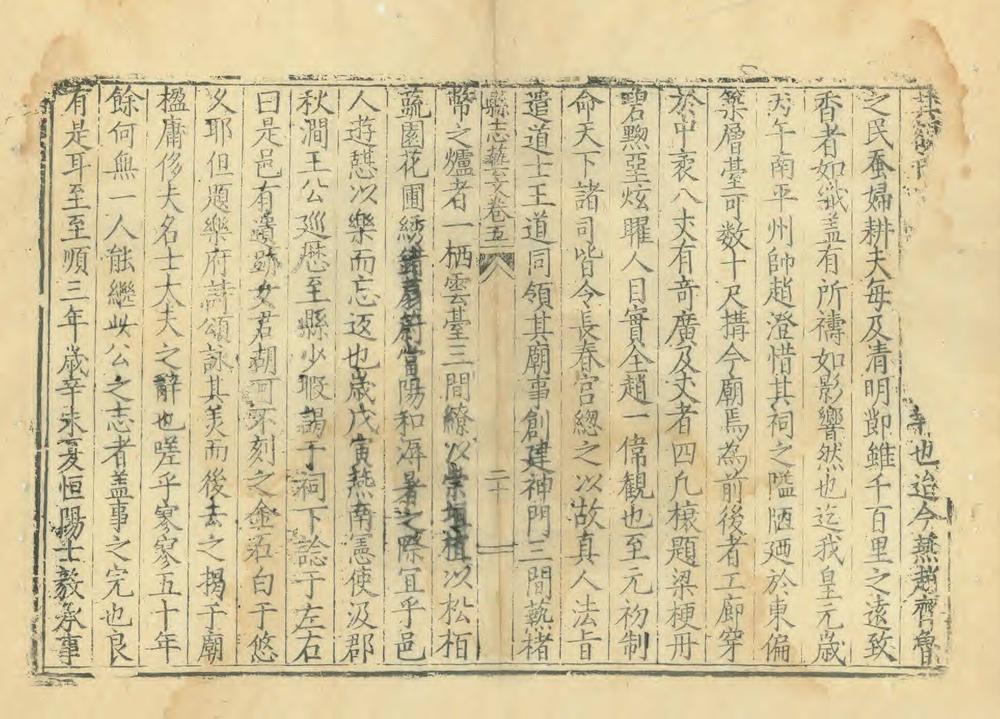 也迨今燕趙齊魯
之民蚕婦耕夫每及清明節雖千百里之遠致
香者如繖盖有所禱如影響然也迄我皇元歳
丙午南平州帥趙澄惜其祠之隘陋廼於東偏
築層臺可数十尺搆今廟焉為前後者工廊穿
於中袤八丈有奇廣及丈者四凡榱題梁梗丹
碧黝堊炫耀人目實全趙一偉観也至元初制
命天下諸司皆令長春宫緫之以故真人法旨
遣道士王道同領其廟事創建神門三間爇楮
縣志藝文卷五
二十
幣之爐者一栖雲臺三間繚以崇垣植以松栢
蔬園花圃綉 當陽和海暑之際宜乎邑
人遊憇以樂而忘返也歳戊寅燕南憲使汲郡
秋澗王公巡歴至縣少暇謁于祠下諗于左右
曰是邑有遺跡女君胡可不刻之金石白于悠
久耶但題樂府詩頌詠其美而後去之揭于廟
楹庸侈夫名士大夫之辭也嗟乎寥寥五十年
餘何無一人能繼此公之志者盖事之完也良
有是耳至至順三年歳辛未夏恒陽士毅承事